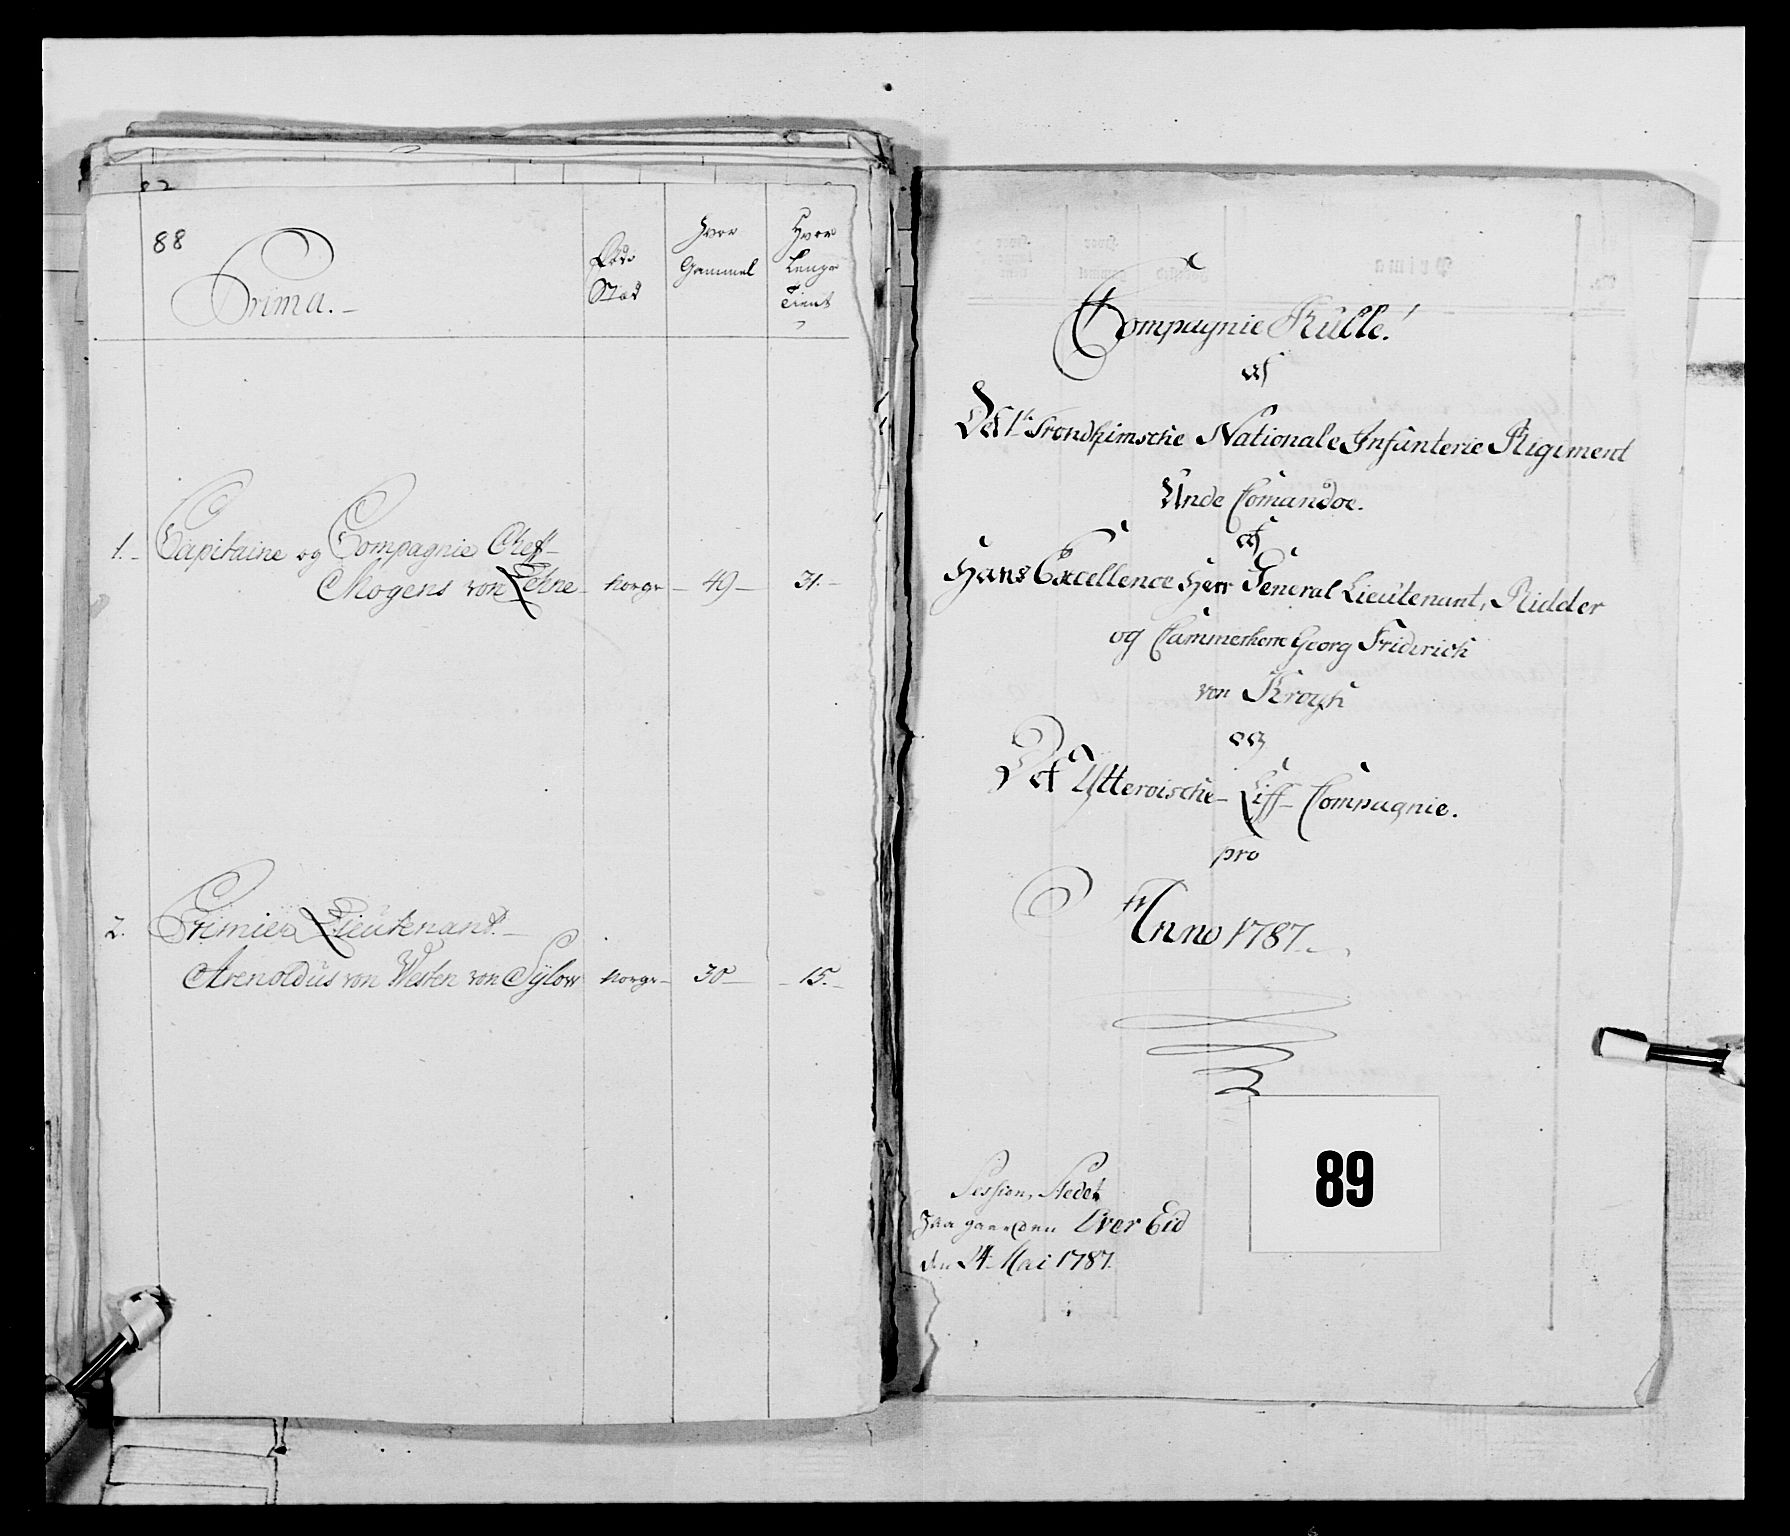 88
Prima.
Føde Stæd
Hvor Gammel
Hvor Lenge Tient
1. Capitaine og Compagnie Chef
Mogens von Lehne Norge 49 31.
2. Primier Lieutenant.
Arenoldus von Westen von Sylow Norge 30 15.
Compagnie Rulle!
af
Det 1te Trondhimsche Nationale Infanterie Rigiment
Unde Comandoe.
af
Hans Excellence Herr General Lieutenant, Ridder
og Cammerherre Georg Friderich
von Krogh
og
Det Ytteroische Liff Compagnie.
pro
Anno 1787.
Session, Stedet
paa gaarden Over Eid
den 24 Mai 1787.
89